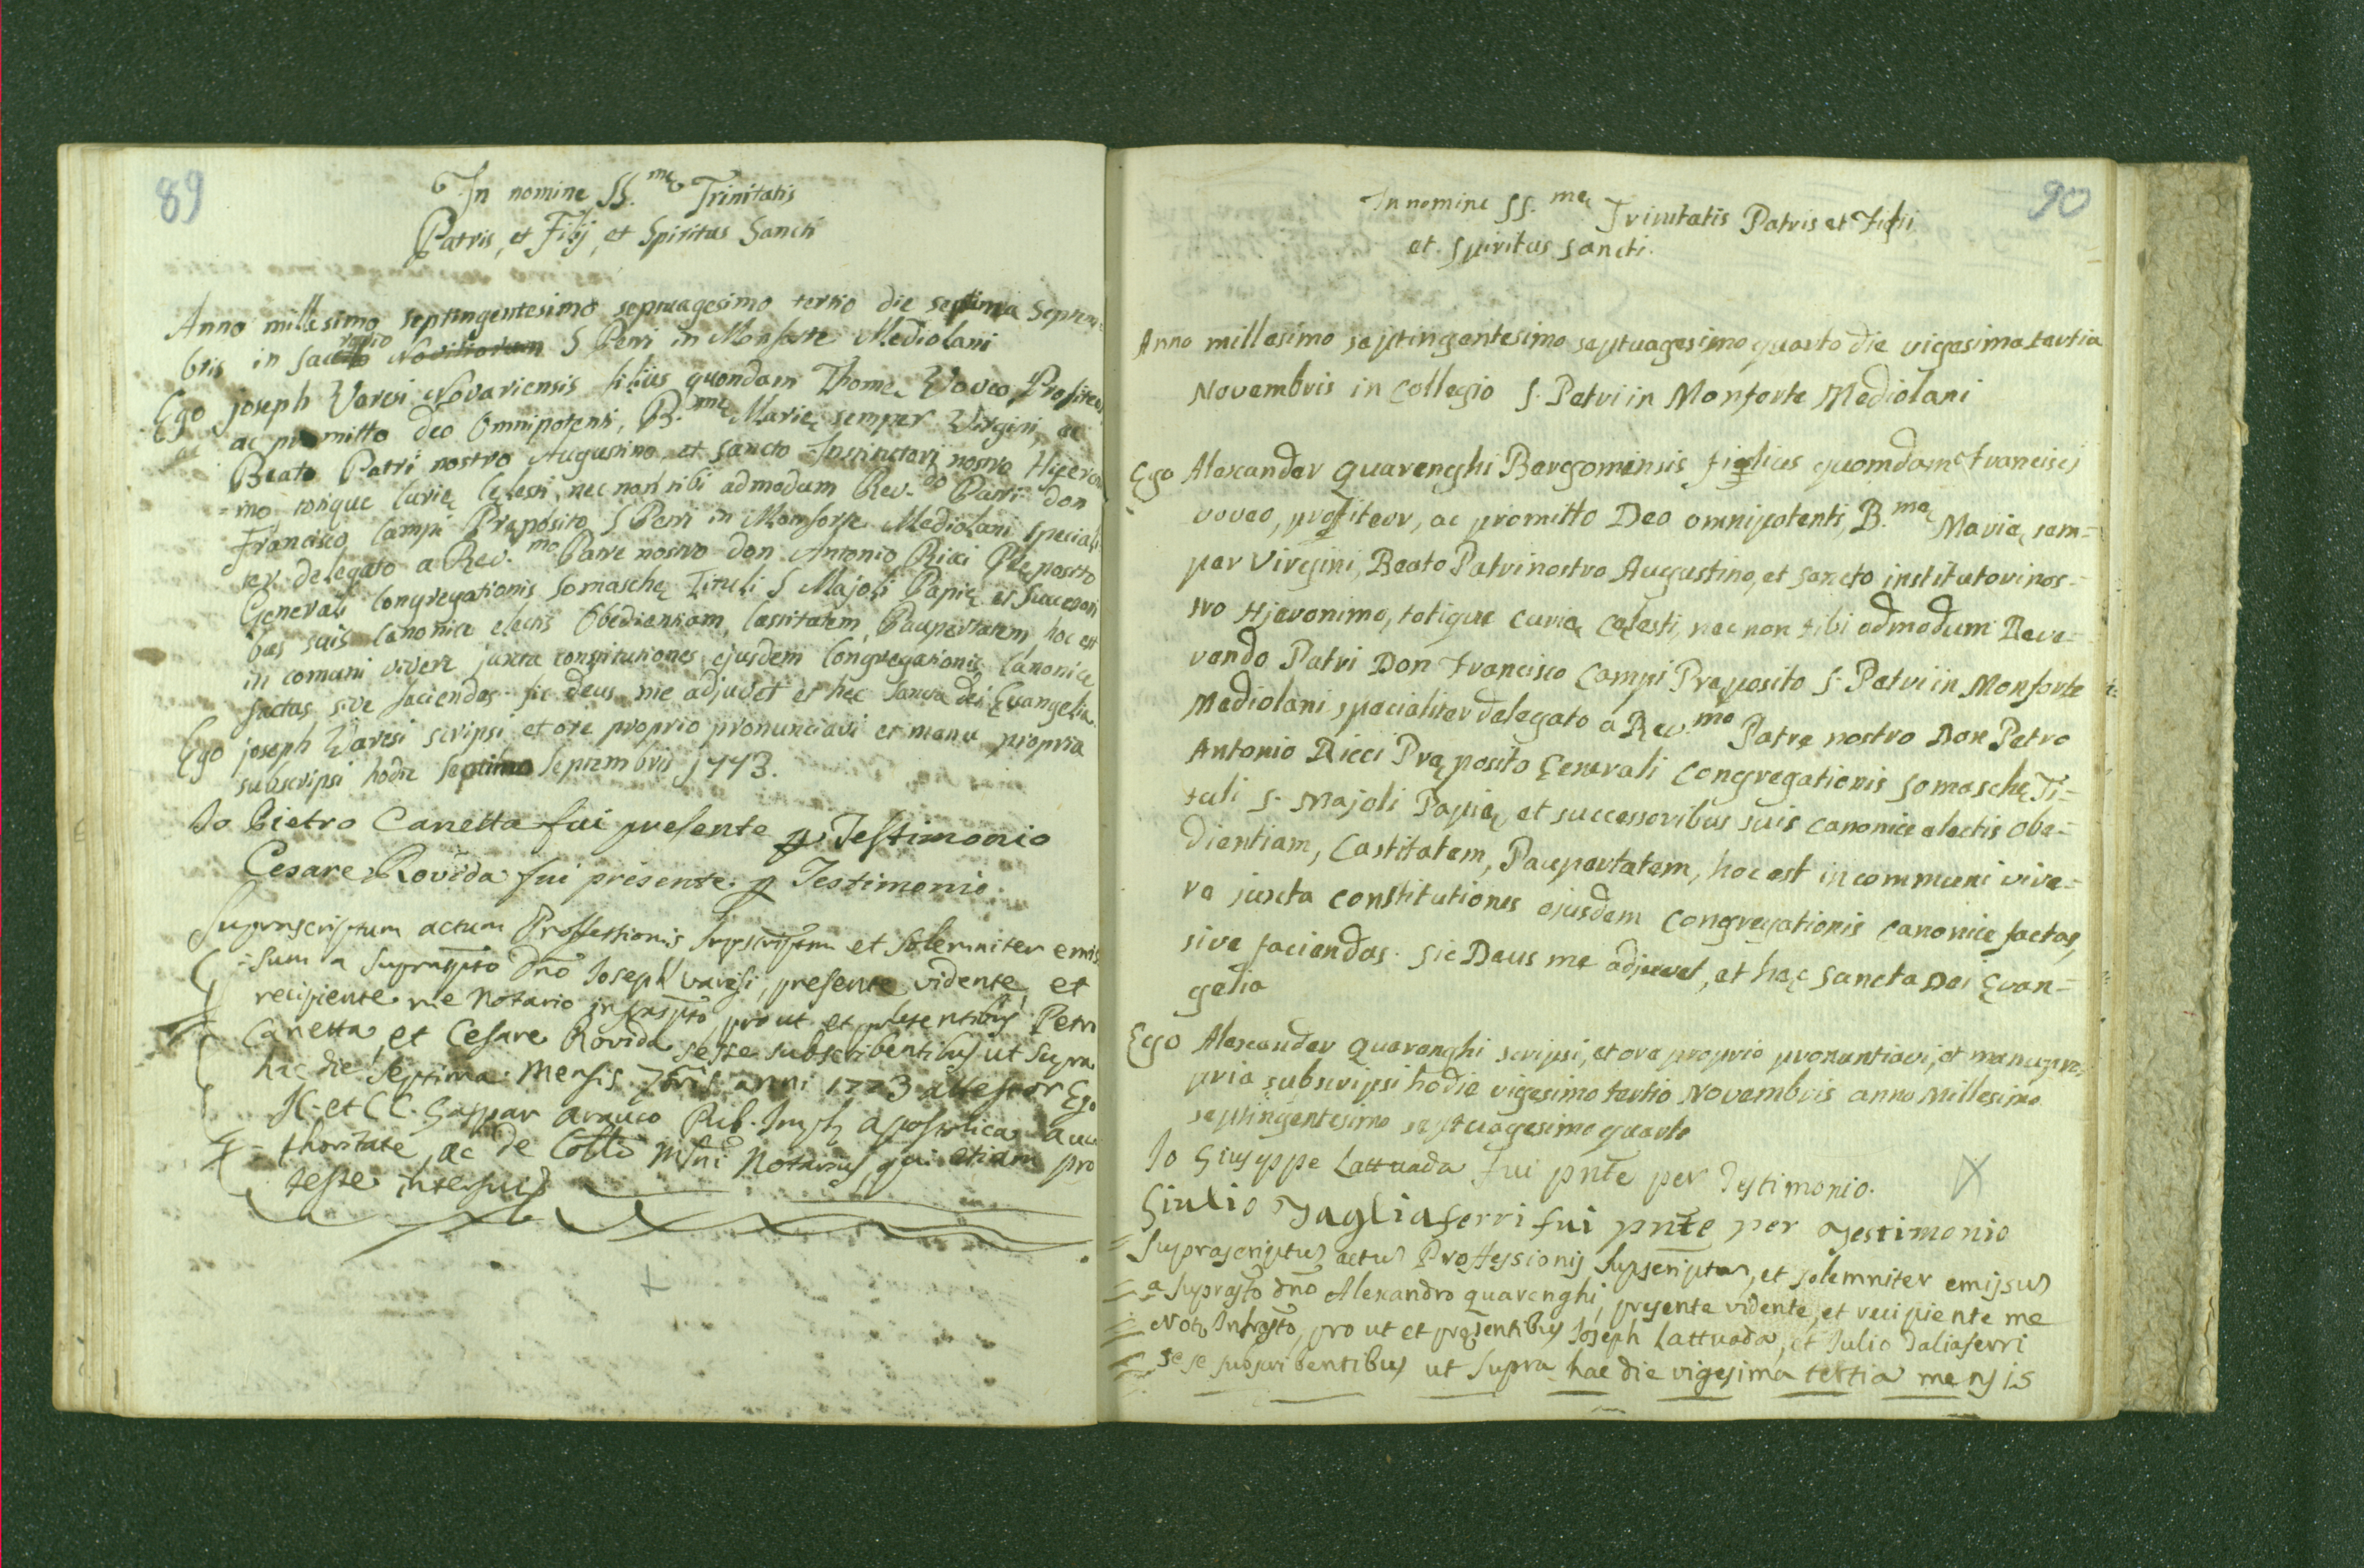 89
In nomine SS.mę Trinitatis
Patris, et Filij, et Spiritus Sancti
Anno millesimo septingentesimo septuagesimo tertio die septima Septem
bris in Sacrario Novitiorum S Petri in Monforte Mediolani
Ego joseph Varesi Novariensis filius quondam Thomę Voveo, Profiteor
ac promitto deo Omnipotenti, B.mę Marię semper Virgini, ac
Beato Patri nostro Augustino et sancto Institutori nostro Hieron
=mo totique Curię Cęlesti, nec non tibi admodum Rev.do Patri don
Francisco Campi Pręposito S Petri in Monforte Mediolani speciali
ter delegato a Rev.mo Patre nostro don Antonio Ricci Pręposito
Generali Congregationis Somaschę Tituli S Majoli Papię et Successori
bus suis Canonice electis Obedientiam, Castitatem, Paupertatem, hoc est
in comuni vivere juxta constitutiones ejusdem Congregationis Canonice
factas sive faciendas. sic deus me adjuvet et hęc Sancta dei Evangelia.
Ego joseph Varesi scripsi et ore proprio pronunciavi et manu propria
subscripsi hodie septima Septembris 1773.
Io Pietro Canetta fui presente p Testimonio
Cesare Rovida fui presente p Testimonio.
Suprascriptum actum Professionis supscriptum et solemniter emis
=sum a suprascpto Dno Joseph Varesi, presente vidente, et
recipiente me Notario infrascpto, pro ut et presentibus Petro
Canetta et Cesare Rovida sesse subscribentibus ut supra
hac die septima Mensis 7bris anni 1773 attestor Ego
JC. et CC. Gaspar Arauco Pub. Apostolica Auc
=thoritate, ac de Collo Mlni Notarius, qui etiam pro
teste interfui
90
In nomine SS.mę Trinitatis Patris et Filii
et Spiritus Sancti.
Anno millesimo septingentesimo septuagesimo quarto die vigesima tertia
Novembris in Collegio S. Petri in Monforte Mediolani
Ego Alexander Quarenghi Bergomensis filius quomdam Francisci
voveo, profiteor, ac promitto Deo omnipotenti, B.mę Marię sem=
per Virgini, Beato Patri nostro Augustino, et sancto institutori nos=
tro Hjeronimo, totique curię cęlesti, nec non tibi admodum Reve=
rendo Patri Don Francisco Campi Pręposito S. Petri in Monforte
Mediolani specialiter delegato a Rev.mo Patre nostro Don Petro
Antonio Ricci Pręposito Generali Congregationis Somaschę Ti=
tuli S. Majoli Papię, et successoribus suis canonice electis Obe=
dientiam, Castitatem, Paupertatem, hoc est in communi vive=
re juxta constitutiones ejusdem Congregationis canonice factas,
sive faciendas. Sic Deus me adjuvet, et hęc Sancta Dei Evan=
gelia
Ego Alexander Quarenghi scripsi, et ore proprio pronuntiavi, et manu pro
pria subscripsi hodie vigesimo tertio Novembris anno Millesimo
septingentesimo septuagesimo quarto
Io Giuseppe Lattuada fui pnte per Testimonio.
Giulio Tagliaferri fui pnte per Testimonio
Suprascriptus actus Professionis supscriptus, et solemniter emissus
a suprasto Dno Alexandro Quarenghi, presente vidente, et recipiente me
Noto Infrasto, pro ut et pręsentibus Joseph Lattuada, et Julio Taliaferri
sese subscribentibus ut supra hac die vigesima tertia mensis